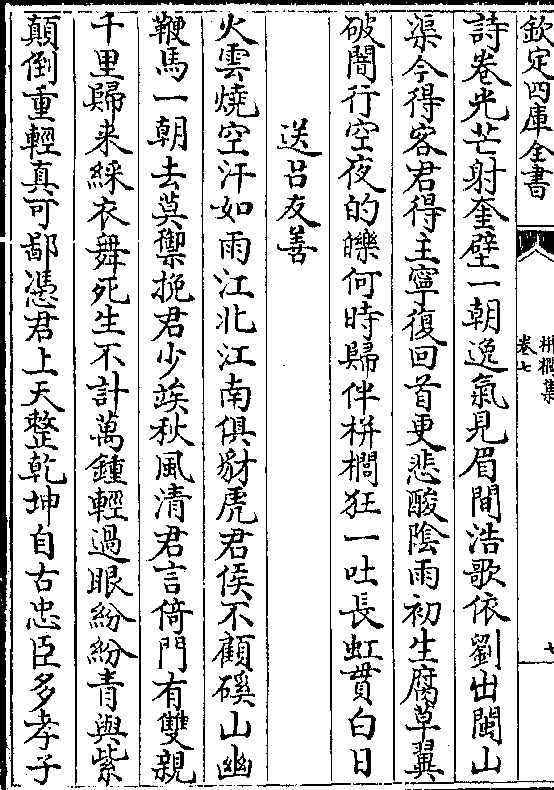 欽定四庫全書
栟櫚集
卷七
七
詩卷光芒射奎壁一朝逸氣見眉間浩歌依劉出閩山
渠今得客君得主寧復回首更悲酸陰雨初生腐草翼
破闇行空夜的皪何時歸伴栟櫚狂一吐長虹貫白日
送吕友善
火雲燒空汗如雨江北江南俱豺虎君侯不顧磎山幽
鞭馬一朝去莫禦挽君少竢秋風清君言倚門有雙親
千里歸来綵衣舞死生不計萬鍾輕過眼紛紛青與紫
顛倒重輕真可鄙憑君上天整乾坤自古忠臣多孝子